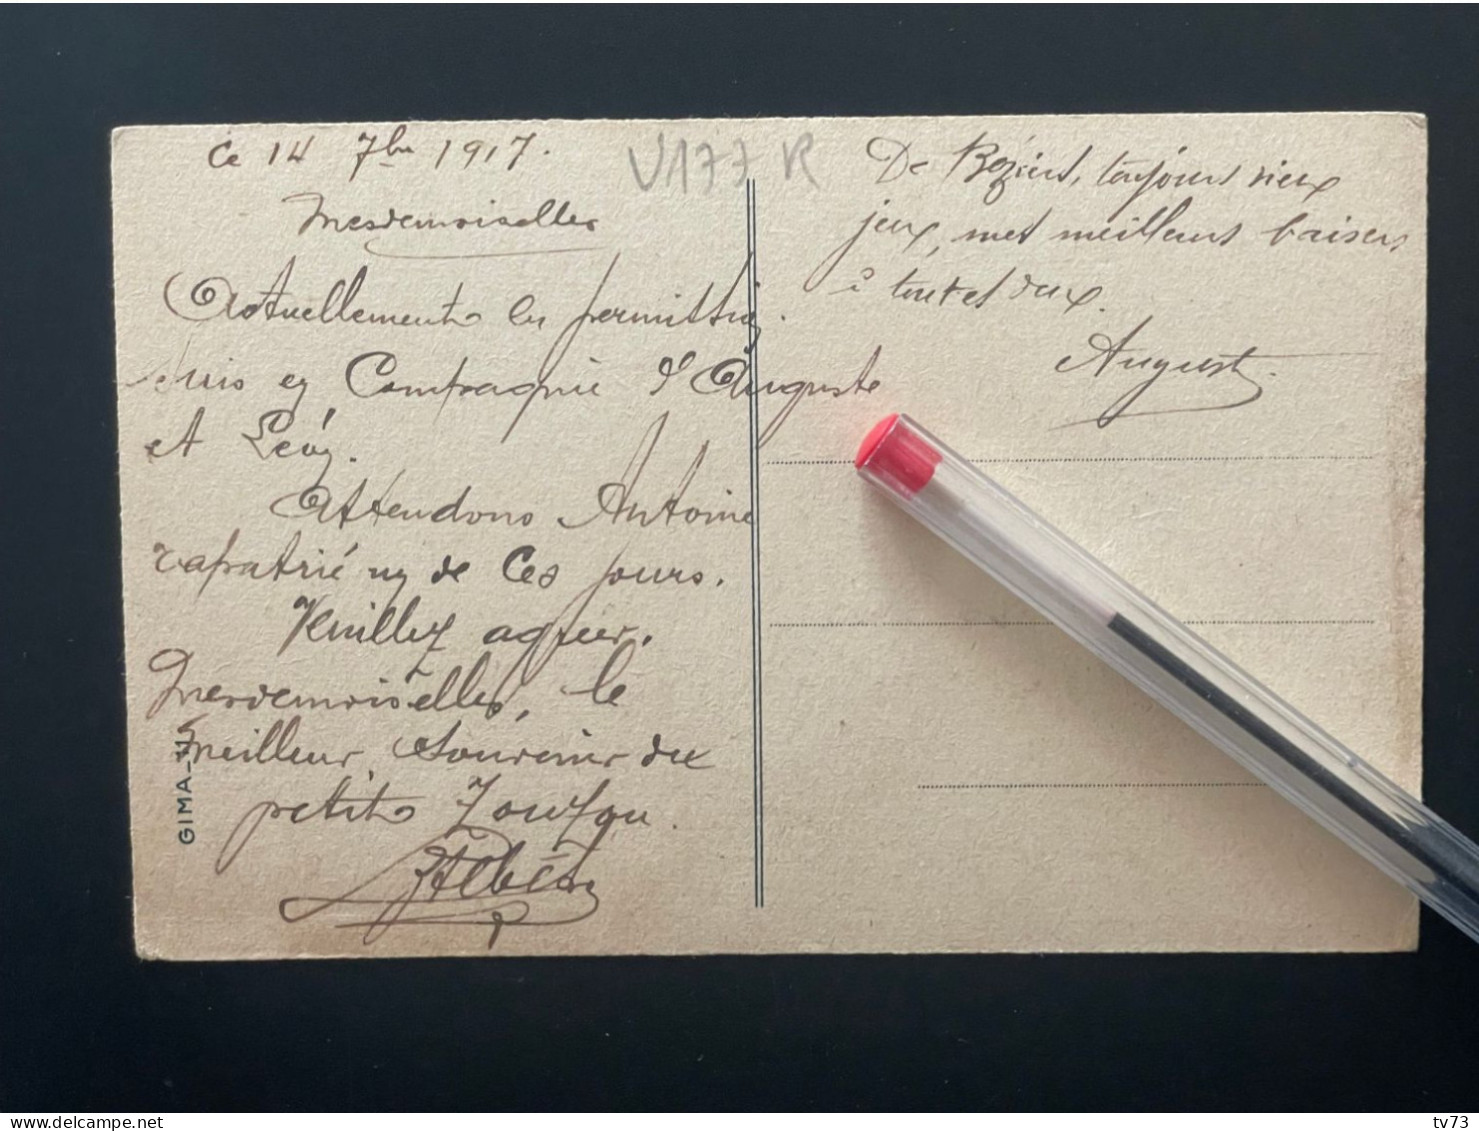 Ce 14 7bre 1917.
Mesdemoiselles
Actuellement en permission.
suis en Compagnie d'Auguste
et Léon.
Attendons Antoine
rapatrié un de ces jours.
Veuillez agréer.
Mesdemoiselles, le
meilleur souvenir du
petit Toufou.
V177 R
De Béziers, toujours vieux
jeux, mes meilleurs baisers
à toutes deux.
August
GIMA
delcampe.net
tv73